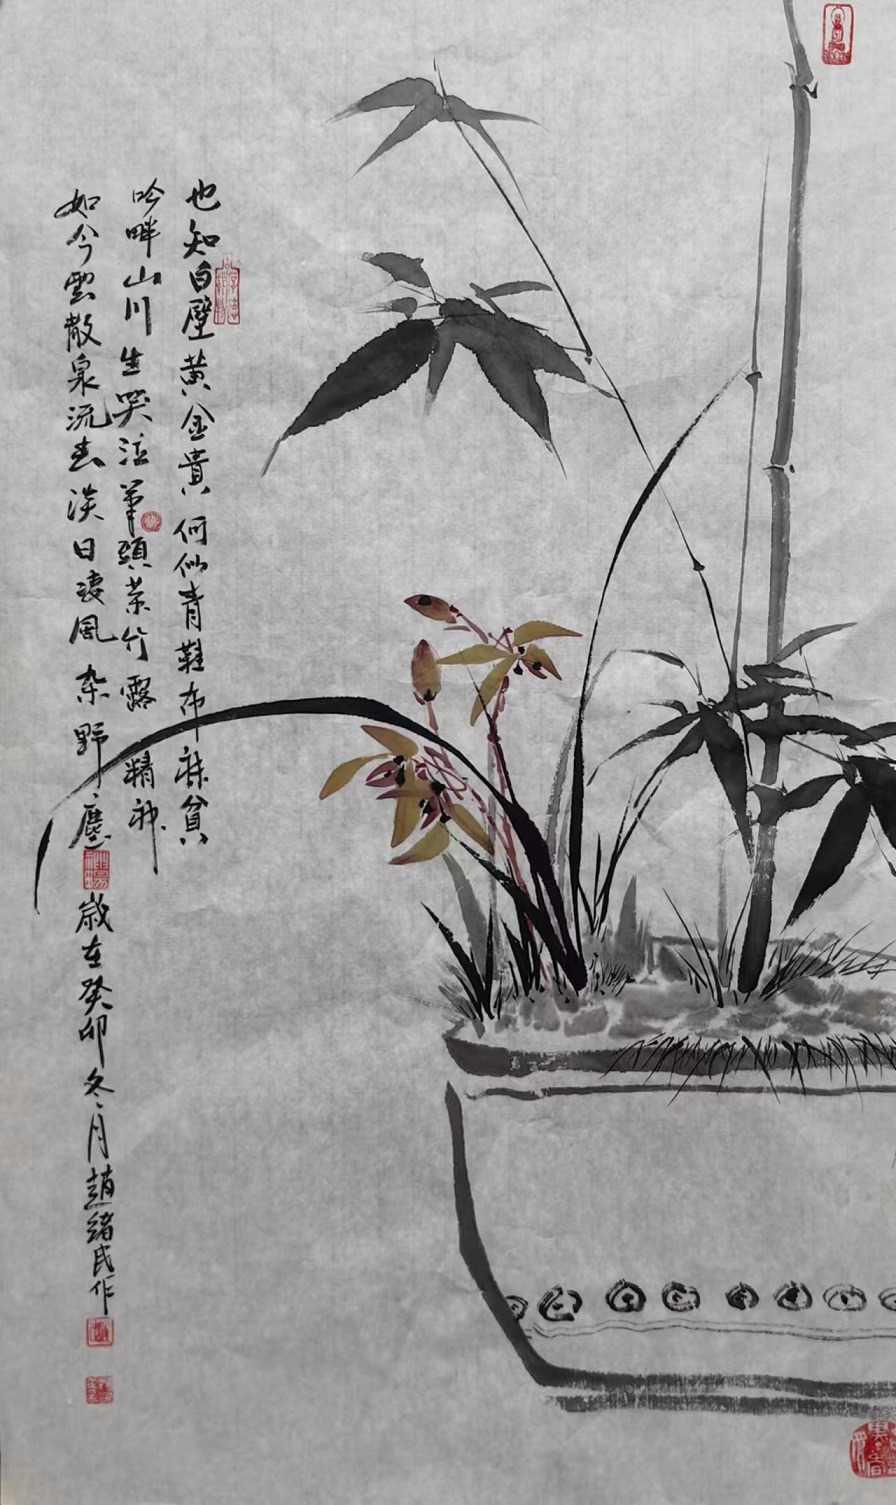 也知白壁黄金貴何似青鞋布袜貧
吟畔山川生哭泣筆頭茶竹露精神
如今雲散泉流去淡日凄風杂野塵
歲在癸卯冬月趙緒民作